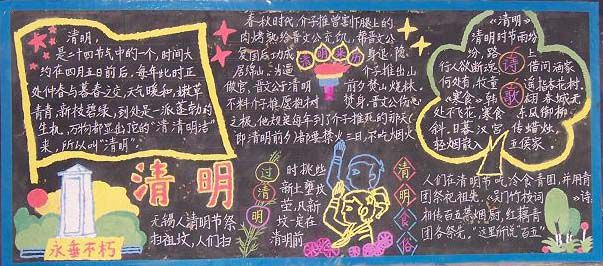 清明,
是二十四节气中的一个,时间大
约在四月五日前后,每年此时正
处仲春与暮春之交,天气暖和,嫩草
青青,新枝碧绿,到处是一派蓬勃的
生机,万物都显出它的“清清明洁”
来,所以叫“清明”。
永垂不朽
清明
春秋时代,介子推曾割下腿上的
肉烤熟给晋文公充饥,帮晋文公
复国后功成
身退,隐
居绵山
介子推出山
做官,晋文公于清明
前夕焚山烧林,
不料介子推愿抱树
焚身,晋文公伤心
之极,他规定每年到了介子推死的那天(
即清明前夕)都要禁火三日,不吃烟火
过清明
无锡人清明节祭
扫祖坟,人们扫
时挑些
新土垒坟
茔,凡新
坟一定在
清明前
清明食俗
人们在清明节吃冷食青团,并用青
团祭祀祖先。《吴门竹枝词》
相传百五禁烟厨,红藕青
团各祭先。”这里所说“百五”
诗歌
《清明》
清明时节雨纷
纷,路上
行人欲断魂。借问酒家
何处有,牧童遥指杏花村。
《寒食》韩翃 春城无
处不飞花,寒食东风御柳
斜。日暮汉宫传蜡烛,
轻烟散入五侯家。